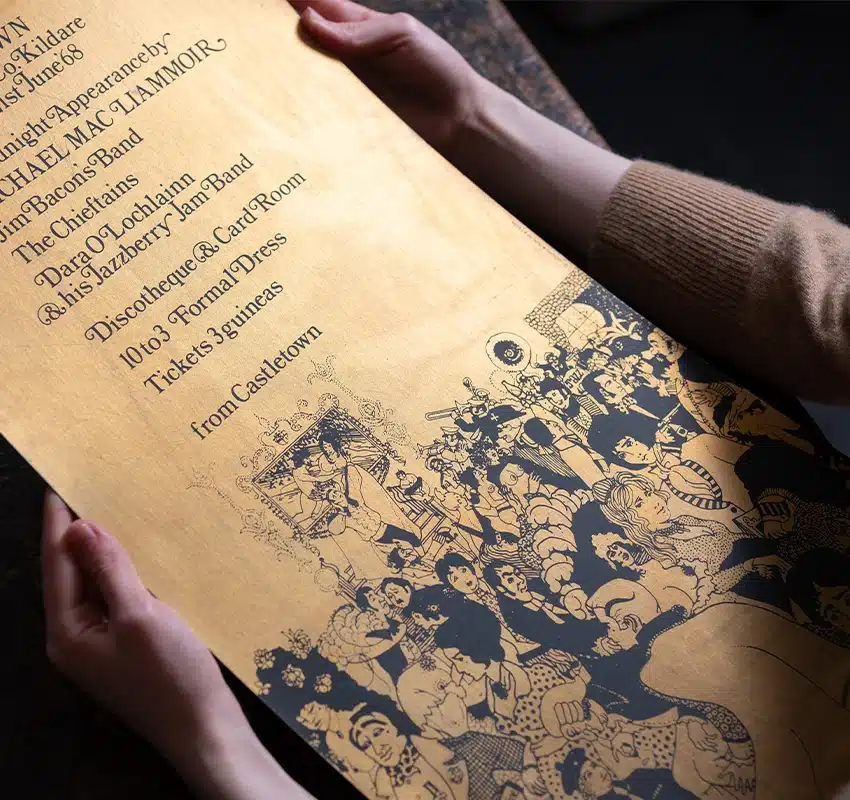 WN
Co. Kildare
1st June '68
dnight Appearance by
CHAEL MAC LIAMMOIR
Jim Bacon's Band
The Chieftains
Dara O Lochlainn
& his Jazzberry Jam Band
Discotheque & Card Room
10 to 3 Formal Dress
Tickets 3 guineas
from Castletown